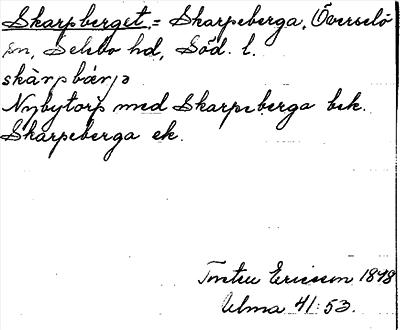 Skarpberget = Skarpeberga, Överselö
sn, Selebo hd, Söd. l.
skàrpbárjə
Nybytorp med Skarpeberga bek.
Skarpeberga ek.
Ericsson 1848
Ulma 41:53.